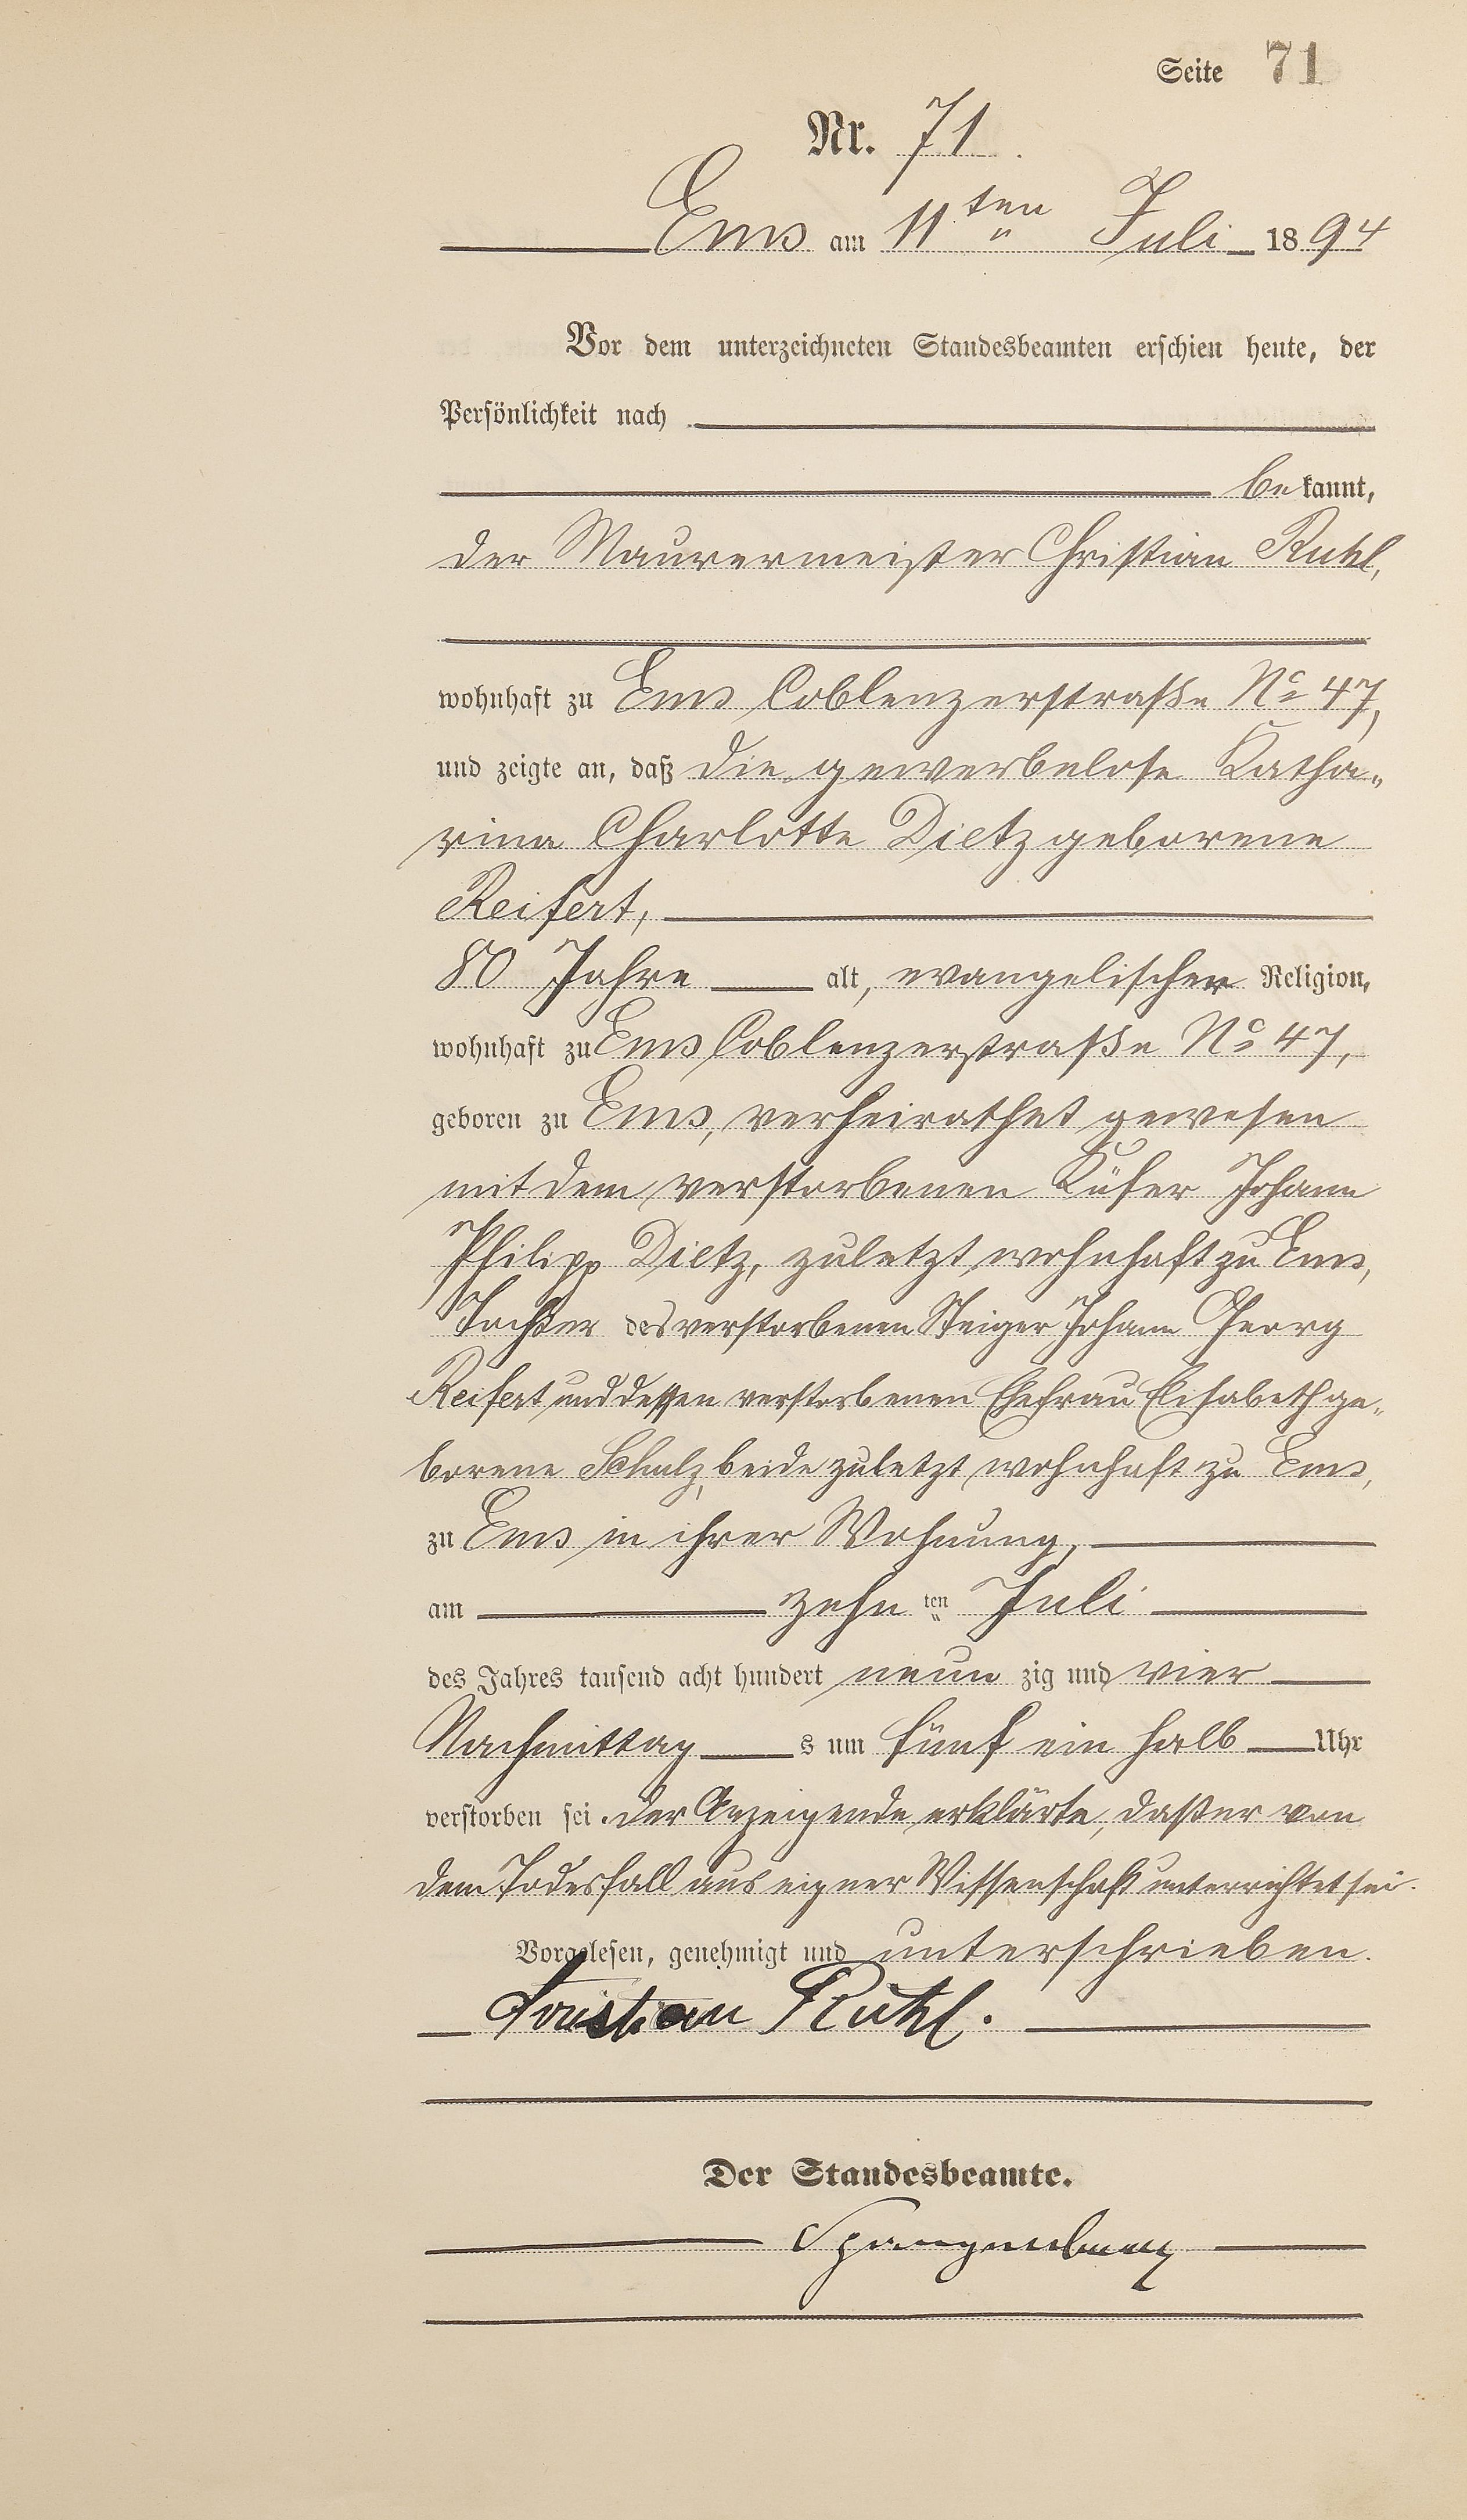 Seite 71
Nr. 71.
Ems am 11ten Juli 1894
Vor dem unterzeichneten Standesbeamten erschien heute, der
Persönlichkeit nach
bekannt,
der Maurermeister Christian Ruhl,
wohnhaft zu Ems Coblenzerstraße No 47,
und zeigte an, daß die gewerbelose Katha-
rina Charlotte Dietz geborene
Reifert,
80 Jahre alt, evangelischer Religion,
wohnhaft zu Ems Coblenzerstraße No 47,
geboren zu Ems, verheirathet gewesen
mit dem verstorbenen Küfer Johann
Philipp Dietz, zuletzt wohnhaft zu Ems,
Tochter des verstorbenen Steiger Johann Georg
Reifert und dessen verstorbenen Ehefrau Elisabeth ge-
borene Schulz, beide zuletzt wohnhaft zu Ems,
zu Ems in ihrer Wohnung,
am zehnten Juli
des Jahres tausend acht hundert neunzig und vier
Nachmittags um fünf ein halb Uhr
verstorben sei. Der Anzeigende erklärte, daß er von
dem Todesfall aus eigner Wissenschaft unterrichtet sei.
Vorgelesen, genehmigt und unterschrieben.
Christian Ruhl.
Der Standesbeamte.
Spangenberg